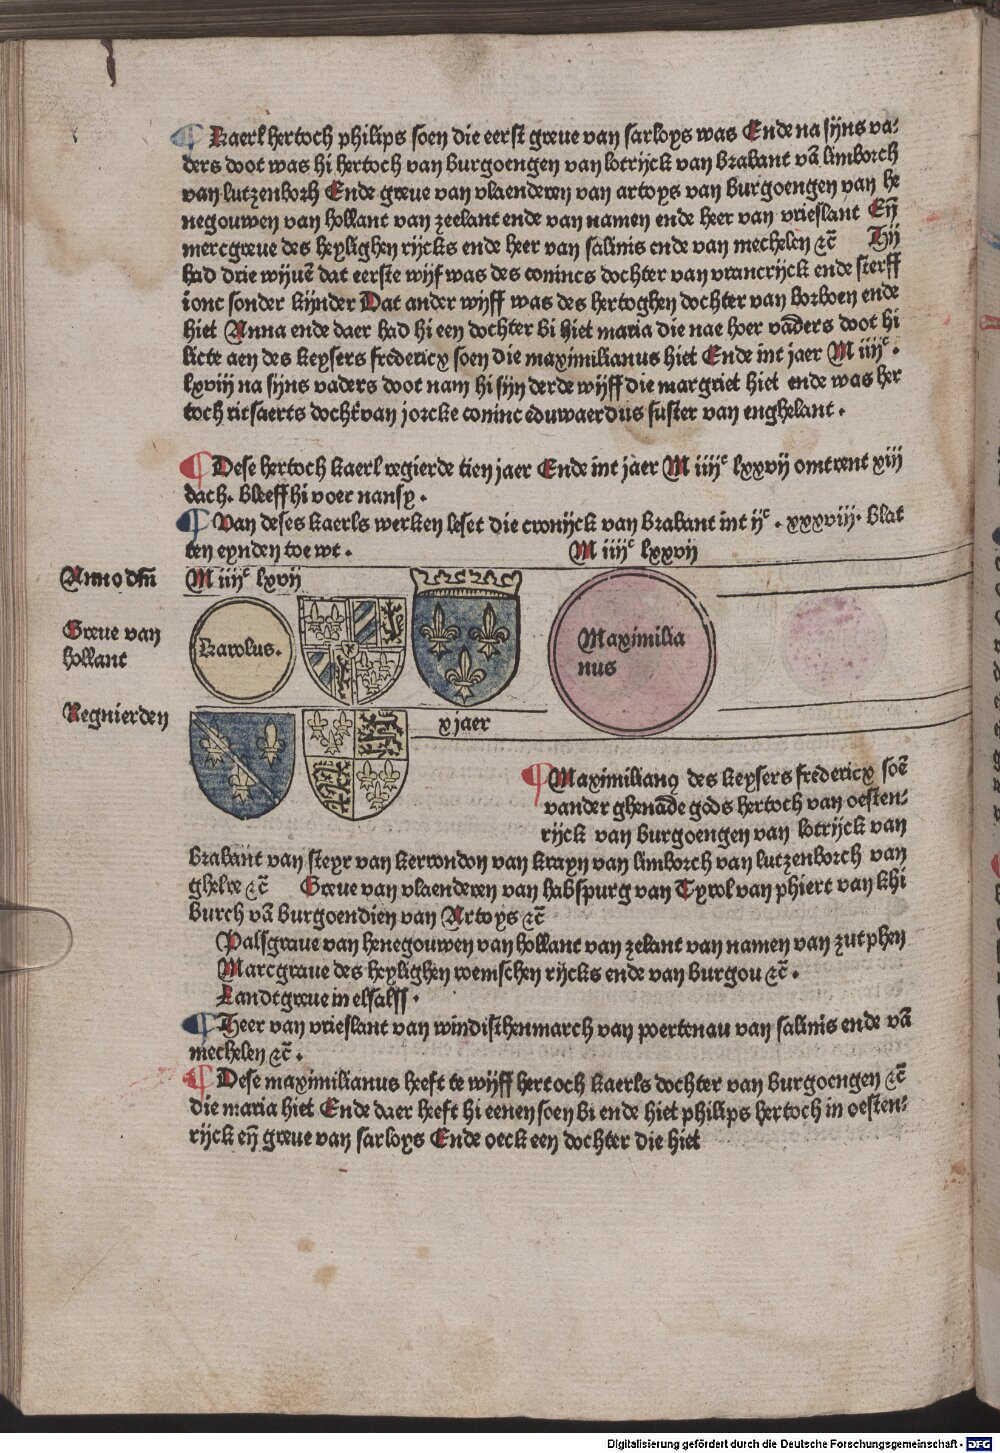 ¶ Kaerl hertoch philips soen die eerst greue van sarloys was Ende na sijns va⸗
ders doot was hi hertoch van Burgoengen van lotrijck van Brabant vā limborch
van lutzenborh Ende greue van vlaenderen van artoys van Burgoengen van he
negouwen van hollant van zeelant ende van namen ende heer van vrieslant Eñ
mercgreue des heylighen rijcks ende heer van salinis ende van mechelen ⁊c̄ Hij
had drie wijuē dat eerste wijf was des conincs dochter van vrancrijck ende sterff
ionc sonder kijnder Dat ander wyff was des hertoghen dochter van borboen ende
hiet Anna ende daer had hi een dochter bi hiet maria die nae hoer vaders doot hi
licte aen des keysers fredericx soen die maximilianus hiet Ende int jaer M iiijᶜ.
lxviij na sijns vaders doot nam hi sijn derde wijff die margriet hiet ende was her
toch ritsaerts docht̄ van jorcke coninc eduwaerdus suster van enghelant.
¶ Dese hertoch kaerl regierde tien jaer Ende int jaer M iiijᶜ lxxvij omtrent xiij
dach. bleeff hi voer nansy.
¶ Van deses kaerls werken leset die cronijck van Brabant int ijᶜ. xxxviij. blat
ten eynden toe wt.
M iiijᶜ lxxvij
Anno dñi
M iiijᶜ lxvij
Greue van
hollant
Karolus.
Maximilia
nus
Regnierden
x jaer
¶ Maximilianꝰ des keysers fredericx soē
vander ghenade gods hertoch van oesten⸗
rijck van Burgoengen van lotrijck van
Brabant van steyr van kerrondon van krayn van limborch van lutzenborch van
ghelre ⁊c̄ Greue van vlaenderen van habspurg van Tyrol van phiert van khi
burch vā burgoendien van Artoys ⁊c̄
Palsgraue van henegouwen van hollant van zelant van namen van zutphen
Marcgraue des heylighen roemschen rijcks ende van burgou ⁊c̄.
Landtgreue in elsalss.
¶ Heer van vrieslant van windisthenmarch van poertenau van salinis ende vā
mechelen ⁊c̄.
¶ Dese maximilianus heeft te wijff hertoch kaerls dochter van burgoengen ⁊c̄
die maria hiet Ende daer heeft hi eenen soen bi ende hiet philips hertoch in oesten⸗
rijck eñ greue van sarloys Ende oeck een dochter die hiet
Digitalisierung gefördert durch die Deutsche Forschungsgemeinschaft - DFG